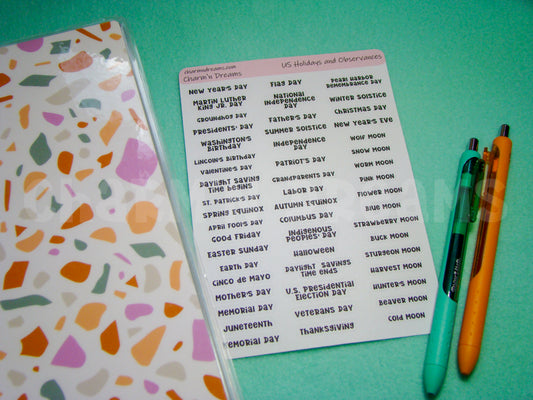 charmndreams.com
Charm'n Dreams
US Holidays and Observances
New Year's Day
Martin Luther
King Jr. Day
Groundhog Day
Presidents' Day
Washington's
Birthday
Lincoln's Birthday
Valentine's Day
Daylight Saving
Time Begins
St. Patrick's Day
Spring Equinox
April Fool's Day
Good Friday
Easter Sunday
Earth Day
Cinco de Mayo
Mother's Day
Memorial Day
Juneteenth
Memorial Day
Flag Day
National
Independence
Day
Father's Day
Summer Solstice
Independence
Day
Patriot's Day
Grandparents Day
Labor Day
Autumn Equinox
Columbus Day
Indigenous
Peoples' Day
Halloween
Daylight Savings
Time Ends
U.S. Presidential
Election Day
Veterans Day
Thanksgiving
Pearl Harbor
Remembrance Day
Winter Solstice
Christmas Day
New Year's Eve
Wolf Moon
Snow Moon
Worm Moon
Pink Moon
Flower Moon
Blue Moon
Strawberry Moon
Buck Moon
Sturgeon Moon
Harvest Moon
Hunter's Moon
Beaver Moon
Cold Moon